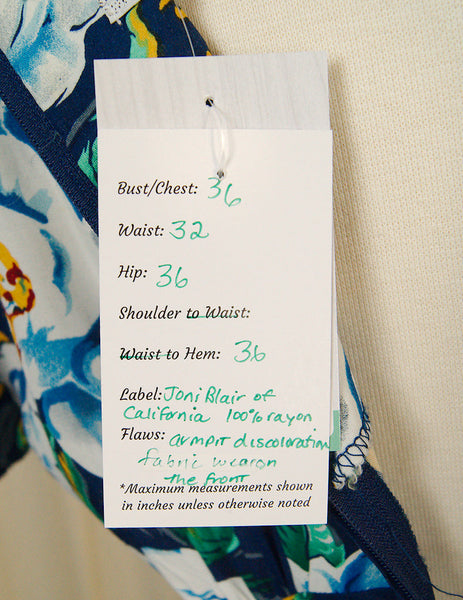 Bust/Chest: 36
Waist: 32
Hip: 36
Shoulder to Waist:
Waist to Hem: 36
Label: Joni Blair of
California 100% rayon
Flaws: armpit discoloration
fabric wear on
the front
*Maximum measurements shown
in inches unless otherwise noted